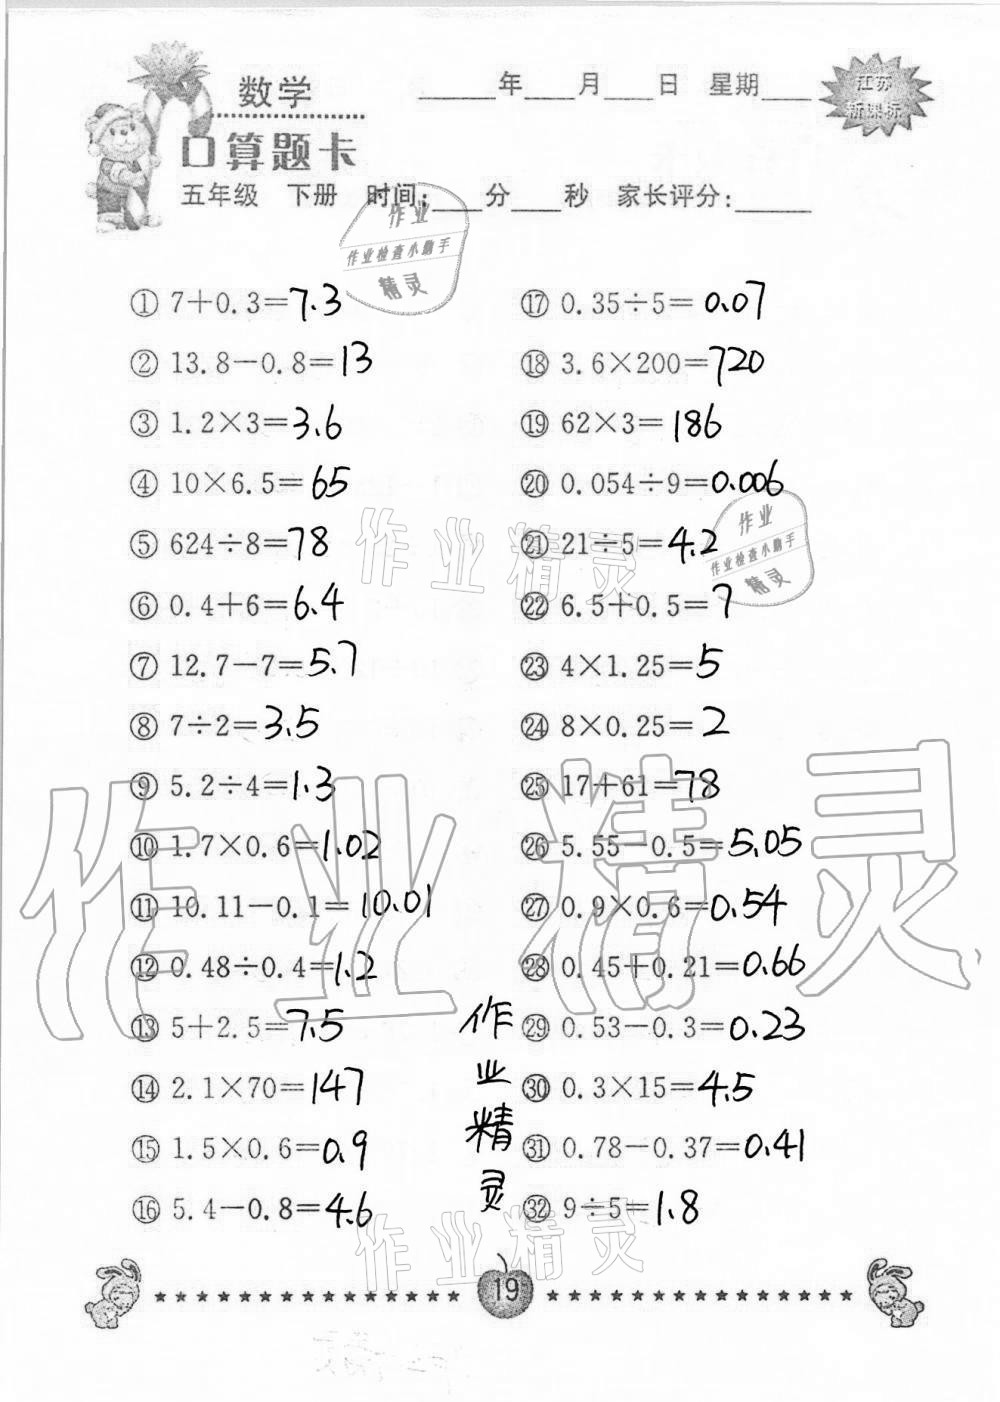 数学
____年____月____日 星期____
江苏
新课标
口算题卡
五年级 下册 时间:____分____秒 家长评分:____
作业
作业检查小助手
精灵
① 7+0.3=7.3
② 13.8-0.8=13
③ 1.2×3=3.6
④ 10×6.5=65
⑤ 624÷8=78
⑥ 0.4+6=6.4
⑦ 12.7-7=5.7
⑧ 7÷2=3.5
⑨ 5.2÷4=1.3
⑩ 1.7×0.6=1.02
⑪ 10.11-0.1=10.01
⑫ 0.48÷0.4=1.2
⑬ 5+2.5=7.5
⑭ 2.1×70=147
⑮ 1.5×0.6=0.9
⑯ 5.4-0.8=4.6
⑰ 0.35÷5=0.07
⑱ 3.6×200=720
⑲ 62×3=186
⑳ 0.054÷9=0.006
㉑ 21÷5=4.2
㉒ 6.5+0.5=7
㉓ 4×1.25=5
㉔ 8×0.25=2
㉕ 17+61=78
㉖ 5.55-0.5=5.05
㉗ 0.9×0.6=0.54
㉘ 0.45+0.21=0.66
㉙ 0.53-0.3=0.23
㉚ 0.3×15=4.5
㉛ 0.78-0.37=0.41
㉜ 9÷5=1.8
作业
作业检查小助手
精灵
作业精灵
作业精灵
作业精灵
作业精灵
19